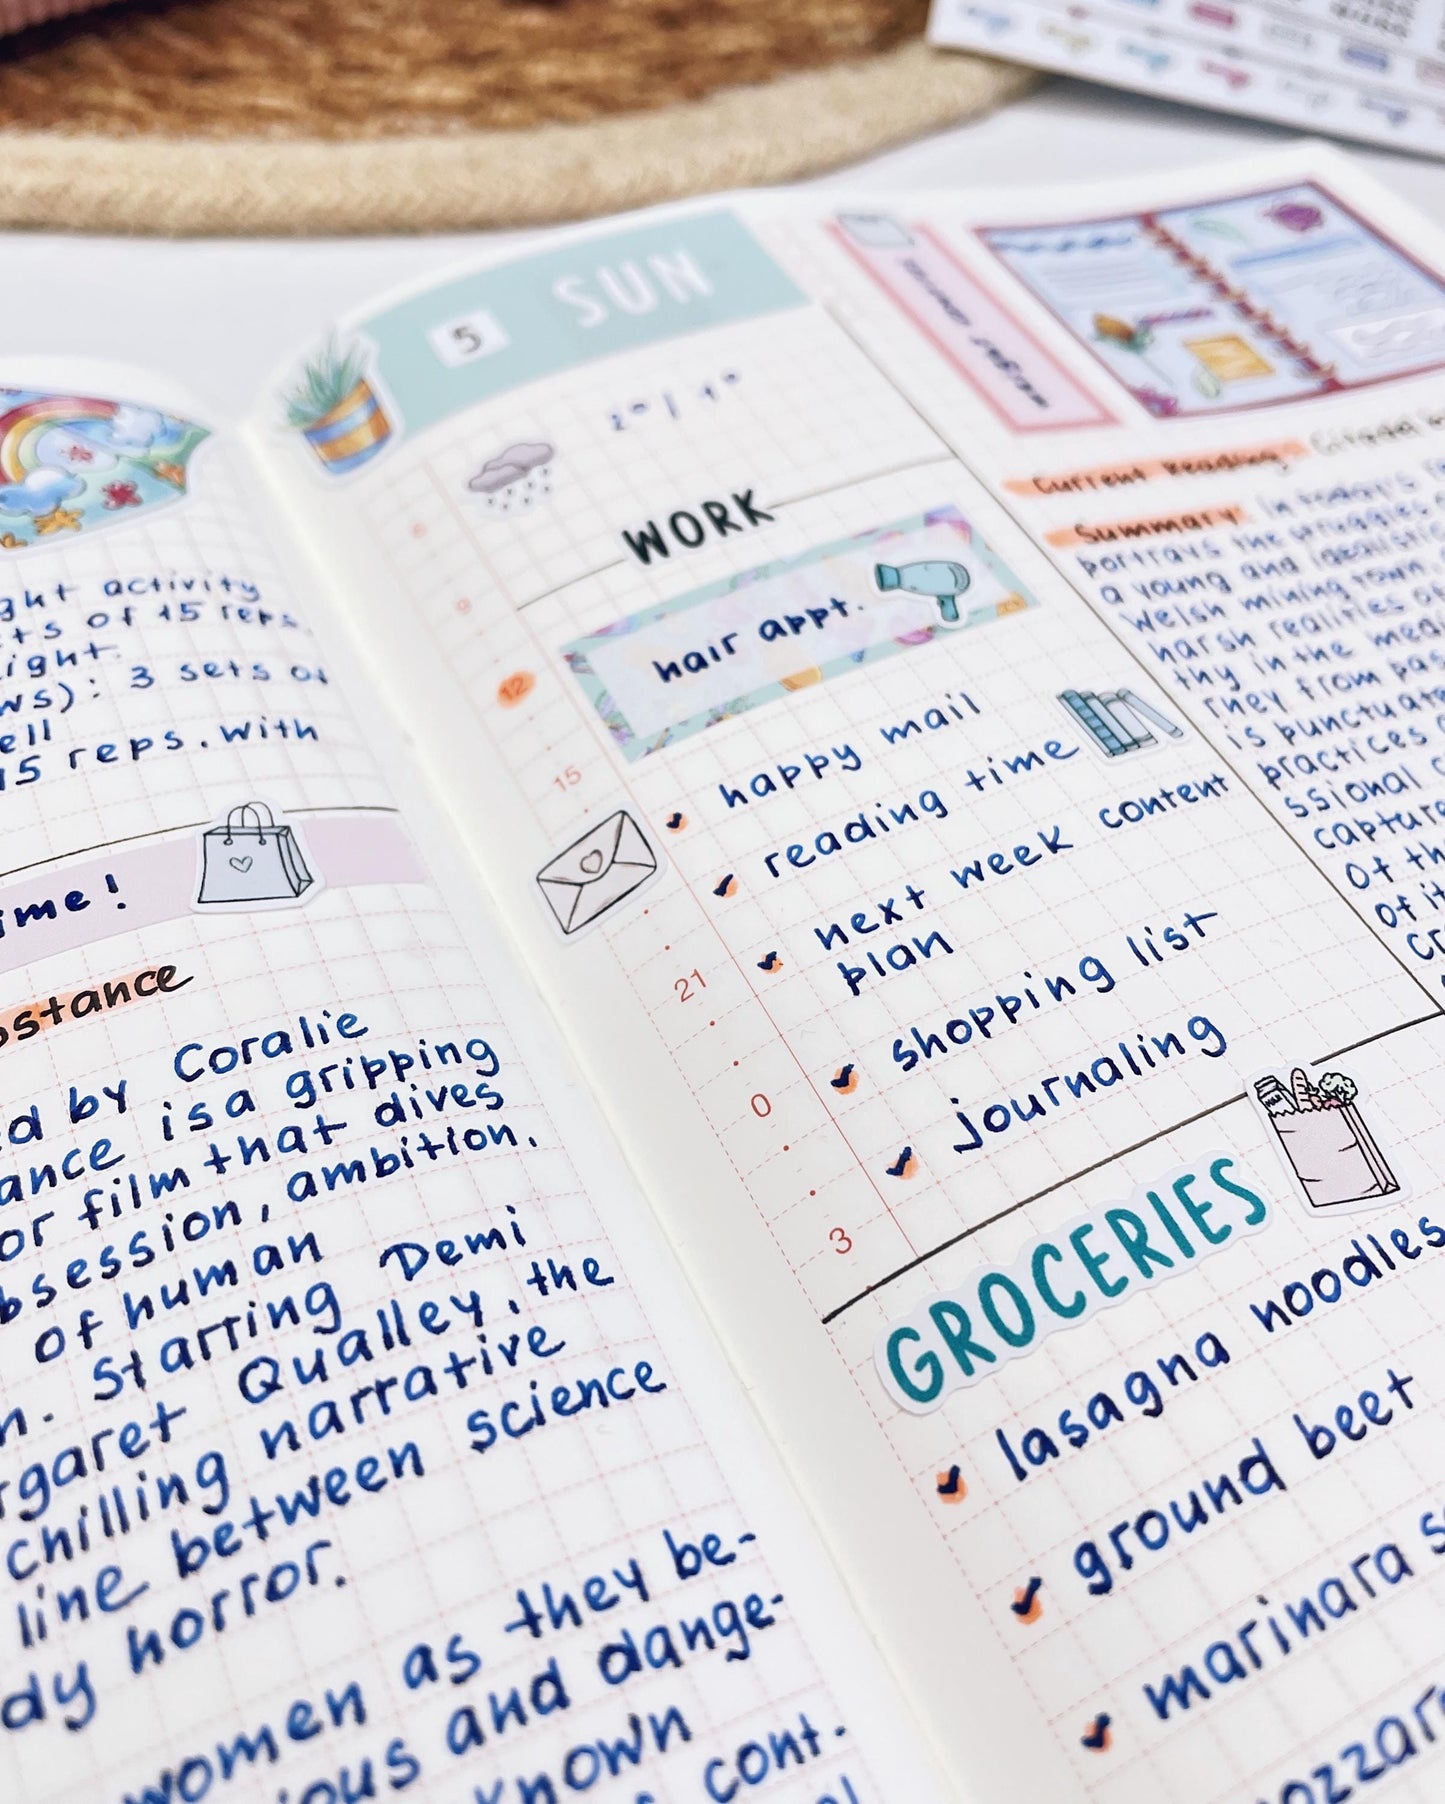 ght activity
ts of 15 reps.
ight.
ws): 3 sets of
ell
15 reps. with
ime!
bstance
ed by Coralie
ance is a gripping
or film that dives
bsession, ambition,
of human
n. Starring Demi
rgaret Qualley, the
chilling narrative
line between science
dy horror.
women as they be-
ious and dange-
known
cont.
5 SUN
WORK
hair appt.
12
15
21
0
3
happy mail
reading time
next week content
plan
shopping list
journaling
GROCERIES
lasagna noodles
ground beet
marinara s
ozzar
Current Reading: Citadel
Summary: In today's re
portrays the struggles
a young and idealistic
Welsh mining town.
harsh realities
thy in the medi
rney from pas
is punctuate
practices
ssional
capture
of th
of it